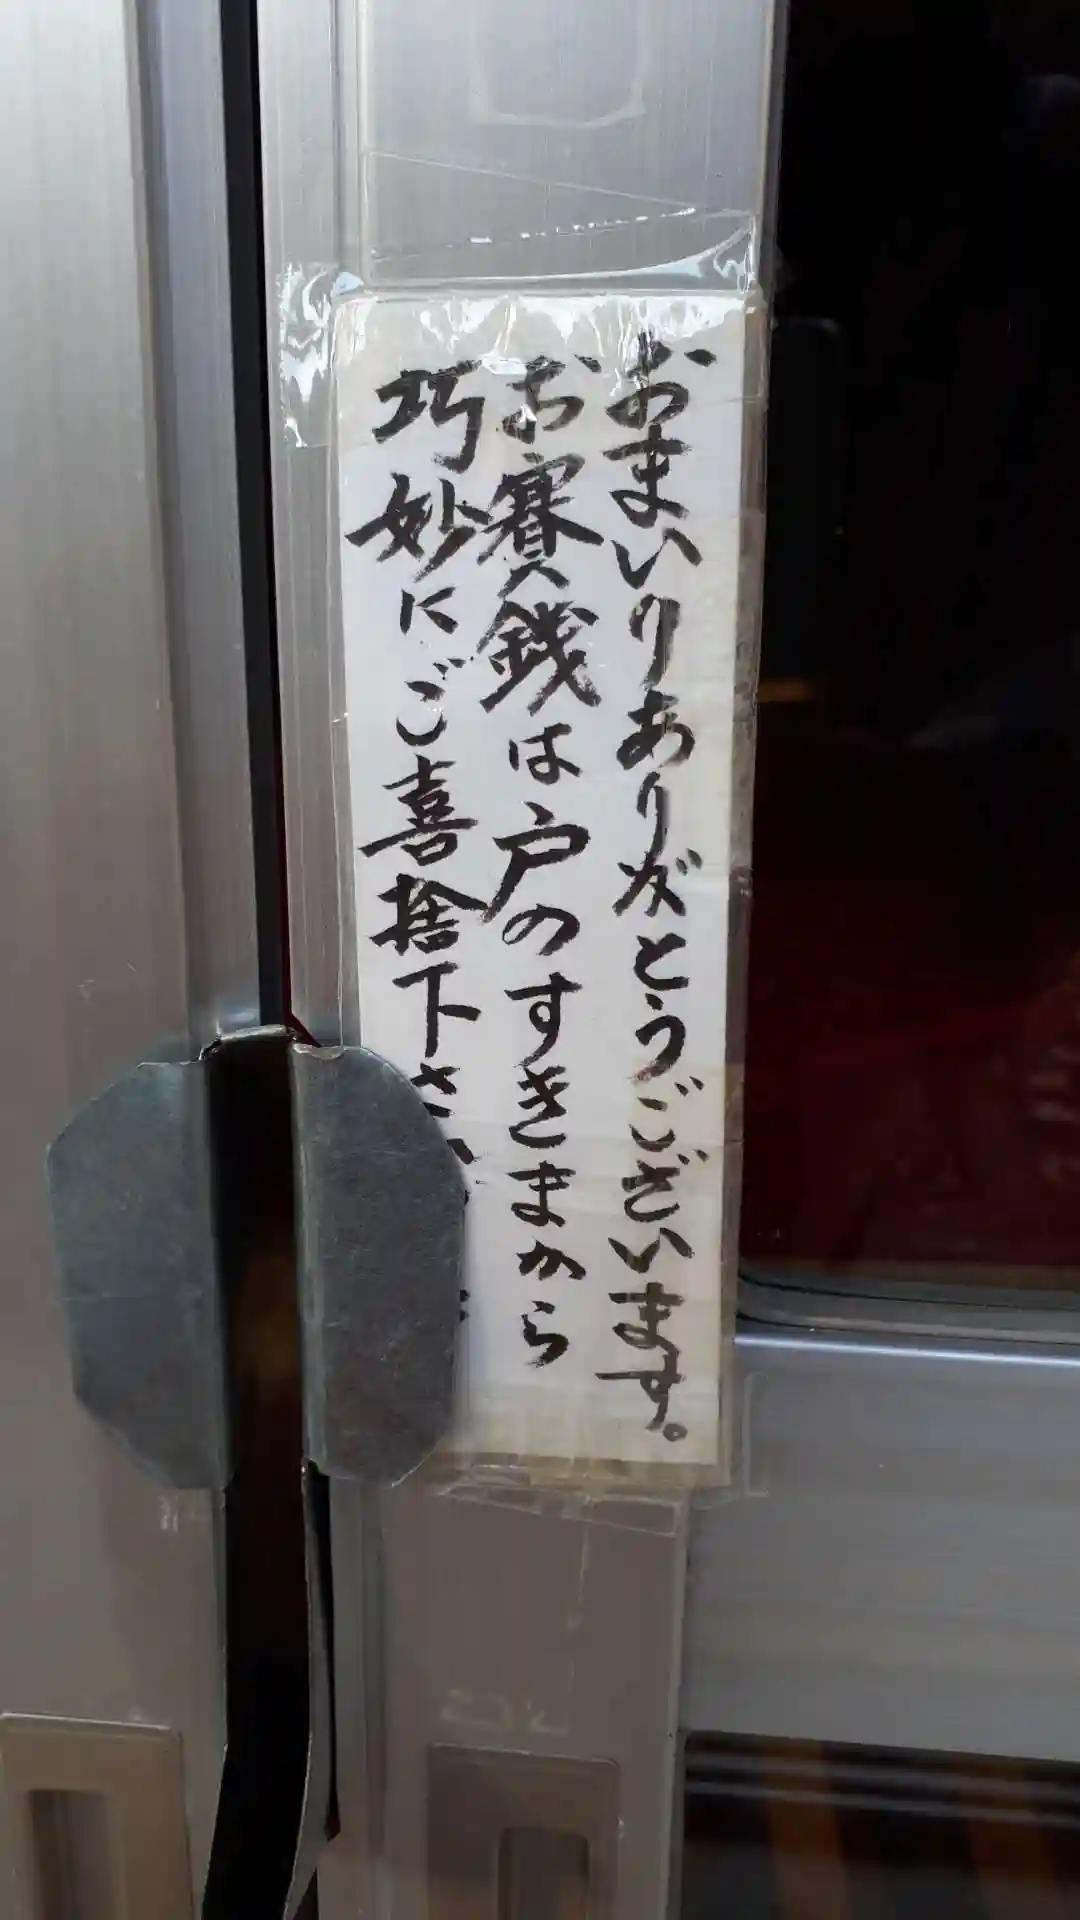 おまいりありがとうございます。
お賽銭は戸のすきまから
巧妙にご喜捨下さい